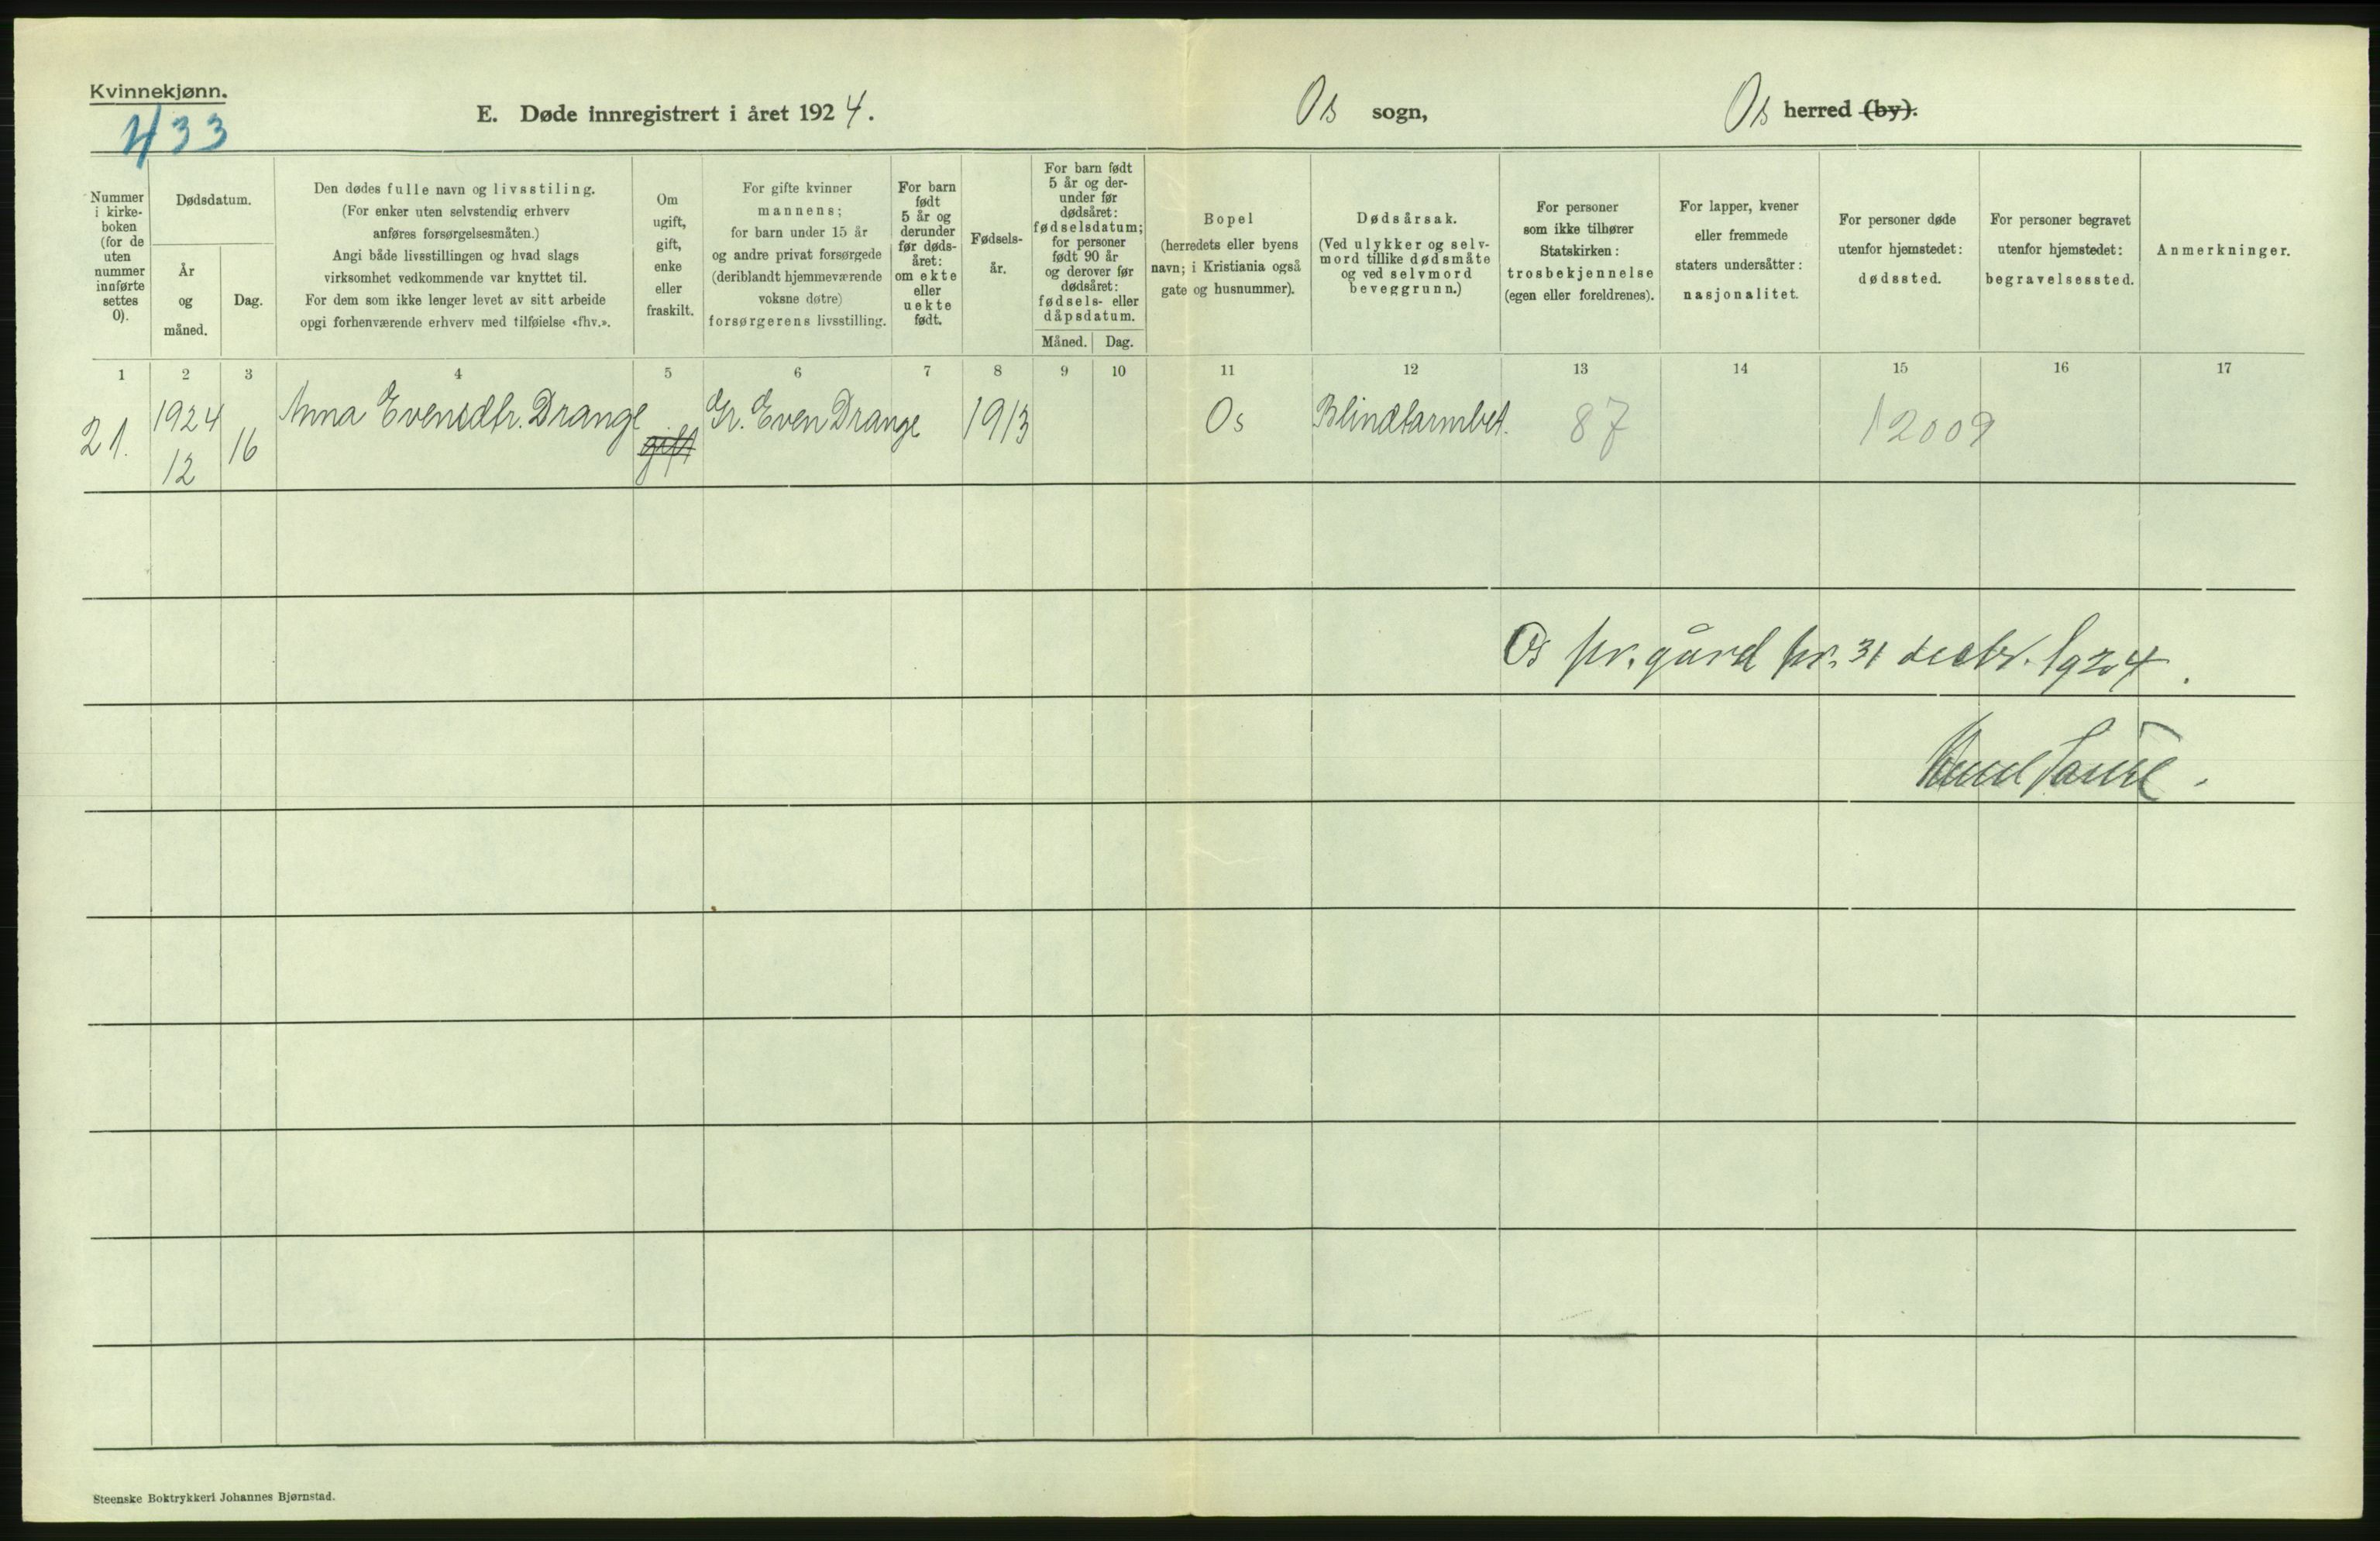 Kvinnekjønn.
433
E. Døde innregistrert i året 1924.
Os sogn,
Os herred (by).
Nummer
i kirke-
boken
(for de
uten
nummer
innførte
settes
0).
Dødsdatum.
År
og
måned.
Dag.
Den dødes fulle navn og livsstiling.
(For enker uten selvstendig erhverv
anføres forsørgelsesmåten.)
Angi både livsstillingen og hvad slags
virksomhet vedkommende var knyttet til.
For dem som ikke lenger levet av sitt arbeide
opgi forhenværende erhverv med tilføielse «fhv.».
Om
ugift,
gift,
enke
eller
fraskilt.
For gifte kvinner
mannens;
for barn under 15 år
og andre privat forsørgede
(deriblandt hjemmeværende
voksne døtre)
forsørgerens livsstilling.
For barn
født
5 år og
derunder
før døds-
året:
om ekte
eller
uekte
født.
Fødsels-
år.
For barn født
5 år og der-
under før
dødsåret:
fødselsdatum;
for personer
født 90 år
og derover før
dødsåret:
fødsels- eller
dåpsdatum.
Måned. Dag.
Bopel
(herredets eller byens
navn; i Kristiania også
gate og husnummer).
Dødsårsak.
(Ved ulykker og selv-
mord tillike dødsmåte
og ved selvmord
beveggrunn.)
For personer
som ikke tilhører
Statskirken:
trosbekjennelse
(egen eller foreldrenes).
For lapper, kvener
eller fremmede
staters undersåtter:
nasjonalitet.
For personer døde
utenfor hjemstedet:
dødssted.
For personer begravet
utenfor hjemstedet:
begravelsessted.
Anmerkninger.
1 2 3 4 5 6 7 8 9 10 11 12 13 14 15 16 17
21. 1924 12 16 Anna Evensdtr. Drange gift Gr. Even Drange 1913 Os Blindtarmbet. 87 12009
Os pr.gård pr. 31 decbr. 1924.
Steenske Boktrykkeri Johannes Bjørnstad.